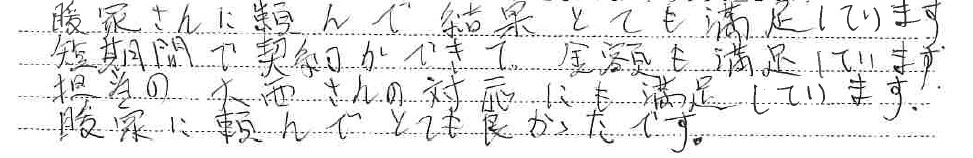 暖家さんに頼んで結果とても満足しています
短期間で契約ができて。金額も満足しています。
担当の大西さんの対応にも満足しています。
暖家に頼んでとても良かったです。